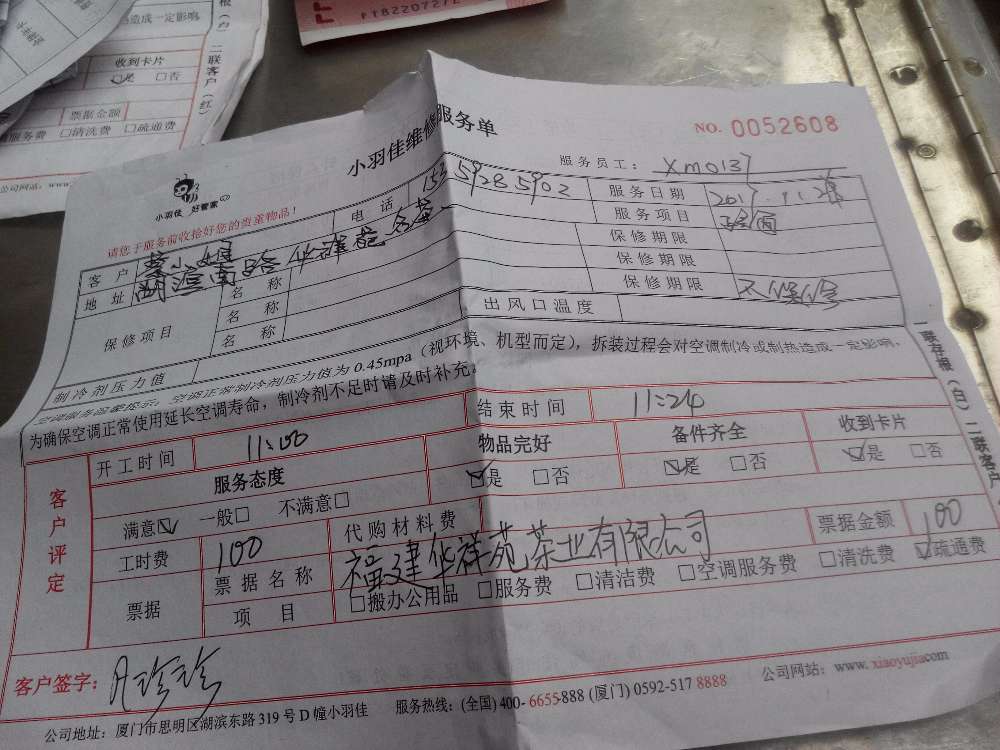 11822072Z
小羽佳维修服务单
NO. 0052608
小羽佳 好管家
服务员工: Xm0137
请您于服务前收拾好您的贵重物品!
客户 蔡小姐 电话 5928 5902 服务日期 2017.11.2
地址 湖滨南路华祥苑名茶 服务项目
保修项目 名称 保修期限
名称 保修期限
名称 保修期限 不保修
制冷剂压力值 出风口温度
空调服务温馨提示:空调正常制冷剂压力值为 0.45mpa (视环境、机型而定),拆装过程会对空调制冷或制热造成一定影响,
为确保空调正常使用延长空调寿命,制冷剂不足时请及时补充。
客户评定
开工时间 11:00 结束时间 11:24
服务态度 物品完好 备件齐全 收到卡片
满意☑ 一般□ 不满意□ ☑是 □否 ☑是 □否 ☑是 □否
工时费 100 代购材料费 票据金额 100
票据 票据名称 福建华祥苑茶业有限公司
项目 □搬办公用品 □服务费 □清洁费 □空调服务费 □清洗费 ☑疏通费
客户签字:
公司地址: 厦门市思明区湖滨东路 319 号 D 幢小羽佳 服务热线: (全国) 400-6655-888 (厦门) 0592-517 8888 公司网站: www.xiaoyujia.com
一联存根(白) 二联客户
造成一定影响
收到卡片
☑是 □否
票据金额
服务费 □清洗费 □疏通费
公司网站: www.
根(白) 二联客户(红)